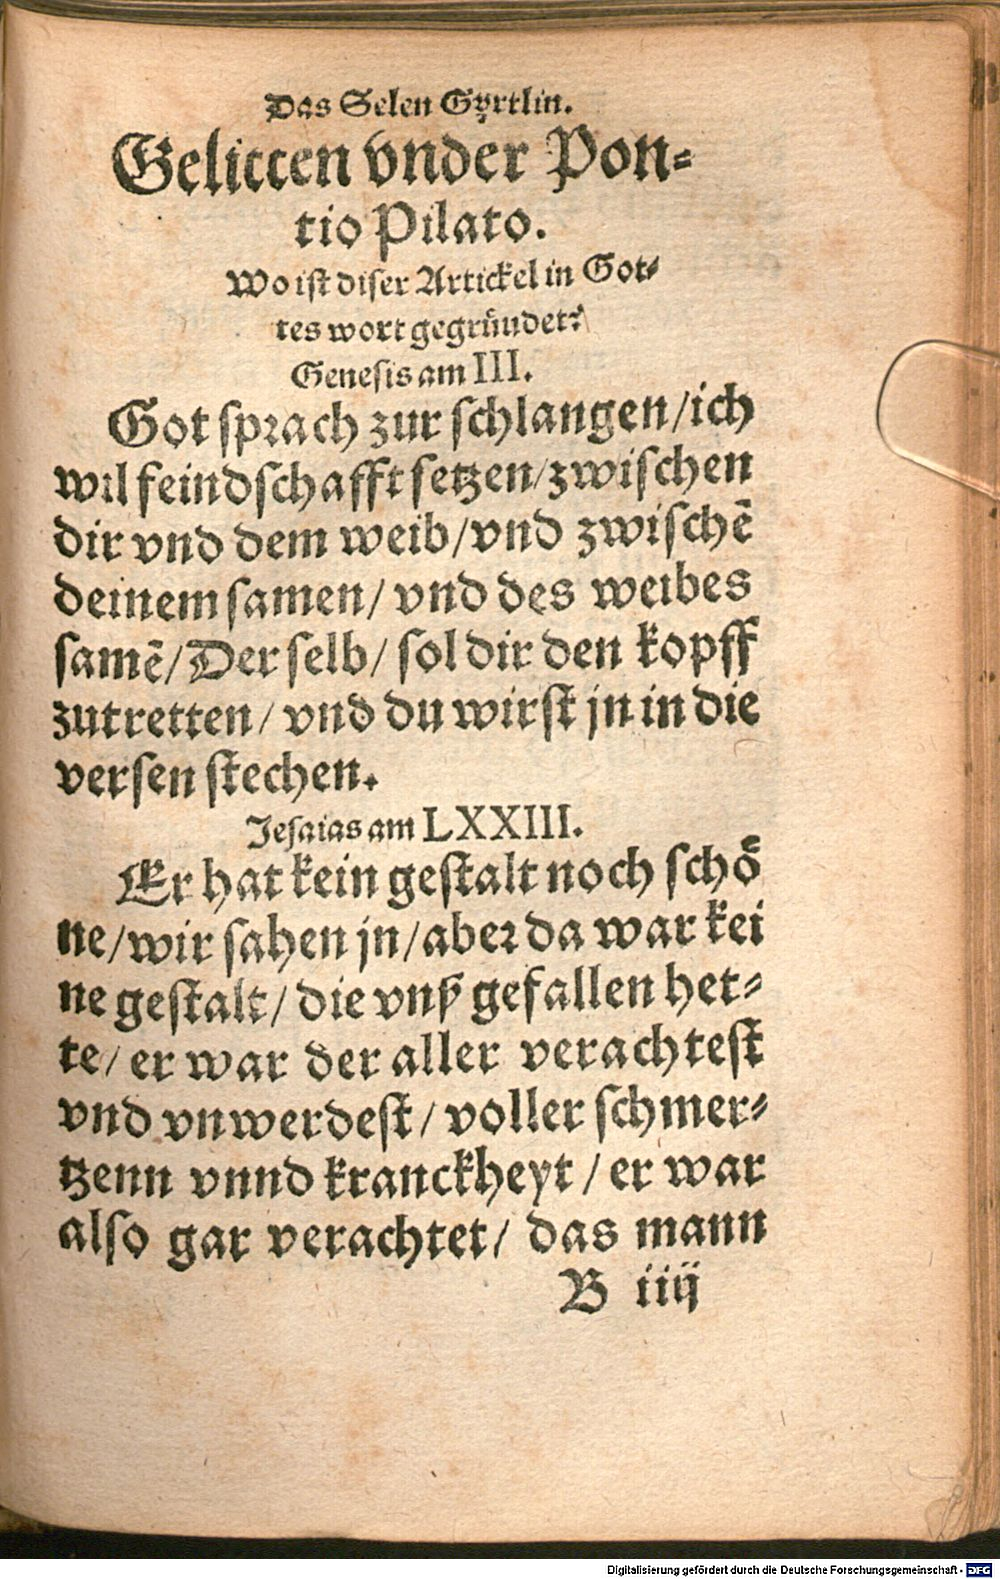 Das Selen Gyrtlin.
Gelitten vnder Pon⸗
tio Pilato.
Wo ist diser Artickel in Got⸗
tes wort gegründet?
Genesis am III.
Got sprach zur schlangen/ich
wil feindschafft setzen/zwischen
dir vnd dem weib/vnd zwischē
deinem samen/ vnd des weibes
samē/Der selb/ sol dir den kopff
zutretten/ vnd du wirst jn in die
versen stechen.
Jesaias am LXXIII.
Er hat kein gestalt noch schö
ne/wir sahen jn/aber da war kei
ne gestalt/ die vnß gefallen het⸗
te/ er war der aller verachtest
vnd vnwerdest/ voller schmer⸗
tzenn vnnd kranckheyt/ er war
also gar verachtet/ das mann
B iiij
Digitalisierung gefördert durch die Deutsche Forschungsgemeinschaft - DFG